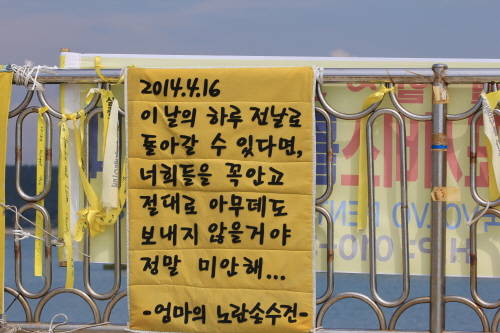 2014.4.16
이날의 하루 전날로
돌아갈 수 있다면,
너희들을 꼭안고
절대로 아무데도
보내지 않을거야
정말 미안해...
-엄마의 노란손수건-